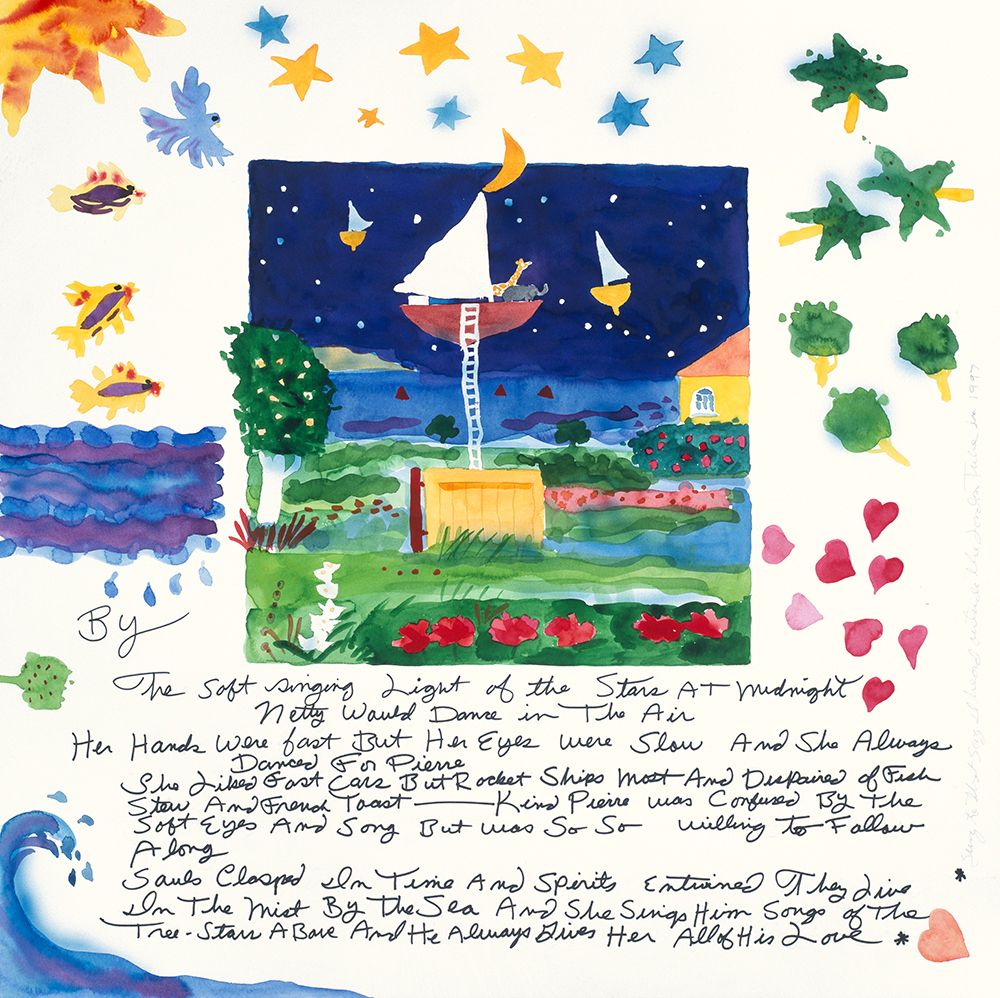 By
The Soft singing Light of the Stars AT Midnight
Netty Would Dance in The Air
Her Hands Were fast But Her Eyes were Slow And She Always
Danced For Pierre
She Liked Fast Cars But Rocket Ships Most And Dispaired of Fish
Stew And French Toast — Kind Pierre was Confused By The
Soft Eyes And Song But was So So willing To Follow
Along
Souls Clasped In Time And Spirits Entwined They Live
In The Mist By The Sea And She Sings Him Songs of The
Tree-Stars Above And He Always Gives Her All of His Love *
* to that say I in 1997